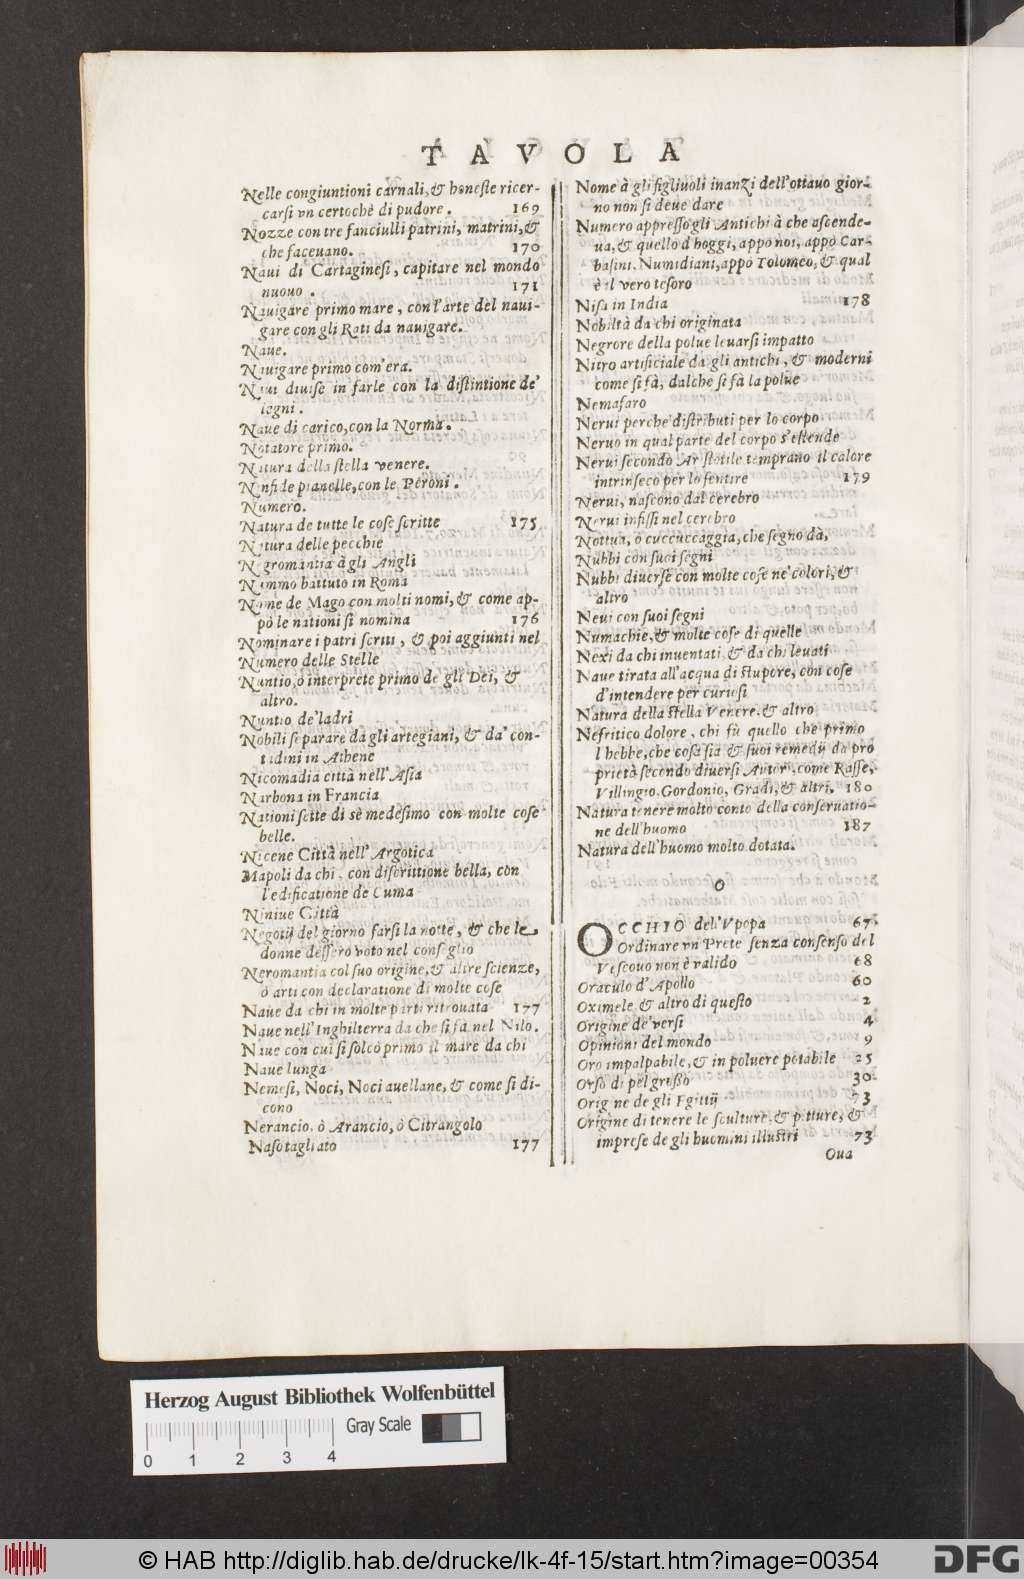 TAVOLA
Nelle congiuntioni carnali, & honeste ricer-
carsi vn certochè di pudore. 169
Nozze con tre fanciulli patrini, matrini, &
che faceuano. 170
Naui di Cartaginesi, capitare nel mondo
nuouo. 171
Nauigare primo mare, con l'arte del naui-
gare con gli Rati da nauigare.
Naue.
Nauigare primo com'era.
Naui diuise in farle con la distintione de'
legni.
Naue di carico, con la Norma.
Notatore primo.
Natura della stella venere.
Ninfi de pianelle, con le Peroni.
Numero.
Natura de tutte le cose scritte 175
Natura delle pecchie
Negromantia à gli Angli
Nummo battuto in Roma
Nome de Mago con molti nomi, & come ap-
pò le nationi si nomina 176
Nominare i patri scritti, & poi aggiunti nel
Numero delle Stelle
Nuntio, ò interprete primo de gli Dei, &
altro.
Nuntio de' ladri
Nobili separare da gli artegiani, & da' con-
tadini in Athene
Nicomadia città nell'Asia
Narbona in Francia
Nationi sette di sè medesimo con molte cose
belle.
Nicene Città nell'Argotica
Mapoli da chi, con discrittione bella, con
l'edificatione de Cuma
Niniue Città
Negotij del giorno farsi la notte, & che le
donne dessero voto nel consiglio
Neromantia col suo origine, & altre scienze,
ò arti con declaratione di molte cose
Naue da chi in molte parti ritrouata 177
Naue nell'Inghilterra da che si fà nel Nilo.
Naue con cui si solcò primo il mare da chi
Naue lunga
Nemesi, Noci, Noci auellane, & come si di-
cono
Nerancio, ò Arancio, ò Citrangolo
Naso tagliato 177
Nome à gli figliuoli inanzi dell'ottauo gior-
no non si deue dare
Numero appresso gli Antichi à che ascende-
ua, & quello d'hoggi, appò noi, appò Car-
basini, Numidiani, appò Tolomeo, & qual
è il vero tesoro
Nisa in India 178
Nobiltà da chi originata
Negrore della polue leuarsi impatto
Nitro artificiale da gli antichi, & moderni
come si fà, dalche si fà la polue
Nemafaro
Nerui perche distributi per lo corpo
Neruo in qual parte del corpo s'estende
Nerui secondo Aristotile temprano il calore
intrinseco per lo sentire 179
Nerui, nascono dal cerebro
Nerui infissi nel cerebro
Nottua, ò cuccuccaggia, che segno dà,
Nubbi con suoi segni
Nubbi diuerse con molte cose ne' colori, &
altro
Neui con suoi segni
Numachie, & molte cose di quelle
Nexi da chi inuentati, & da chi leuati
Naue tirata all'acqua di stupore, con cose
d'intendere per curiosi
Natura della stella Venere, & altro
Nefritico dolore, chi fù quello che primo
l'hebbe, che cosa sia & suoi remedij da pro
prietà secondo diuersi Autori, come Rasse,
Villingio, Gordonio, Gradi, & altri. 180
Natura tenere molto conto della conseruatio-
ne dell'huomo 187
Natura dell'huomo molto dotata.
O
OCCHIO dell'Vpopa 67.
Ordinare vn Prete senza consenso del
Vescouo non è valido 68
Oraculo d'Apollo 60
Oximele & altro di questo 2
Origine de' versi 4
Opinioni del mondo 9
Oro impalpabile, & in poluere potabile 25
Orso di pel grosso 30
Origine de gli Egittij 73
Origine di tenere le sculture, & pitture, &
imprese de gli huomini illustri 73
Oua
Herzog August Bibliothek Wolfenbüttel
Gray Scale
0 1 2 3 4
© HAB http://diglib.hab.de/drucke/lk-4f-15/start.htm?image=00354
DFG